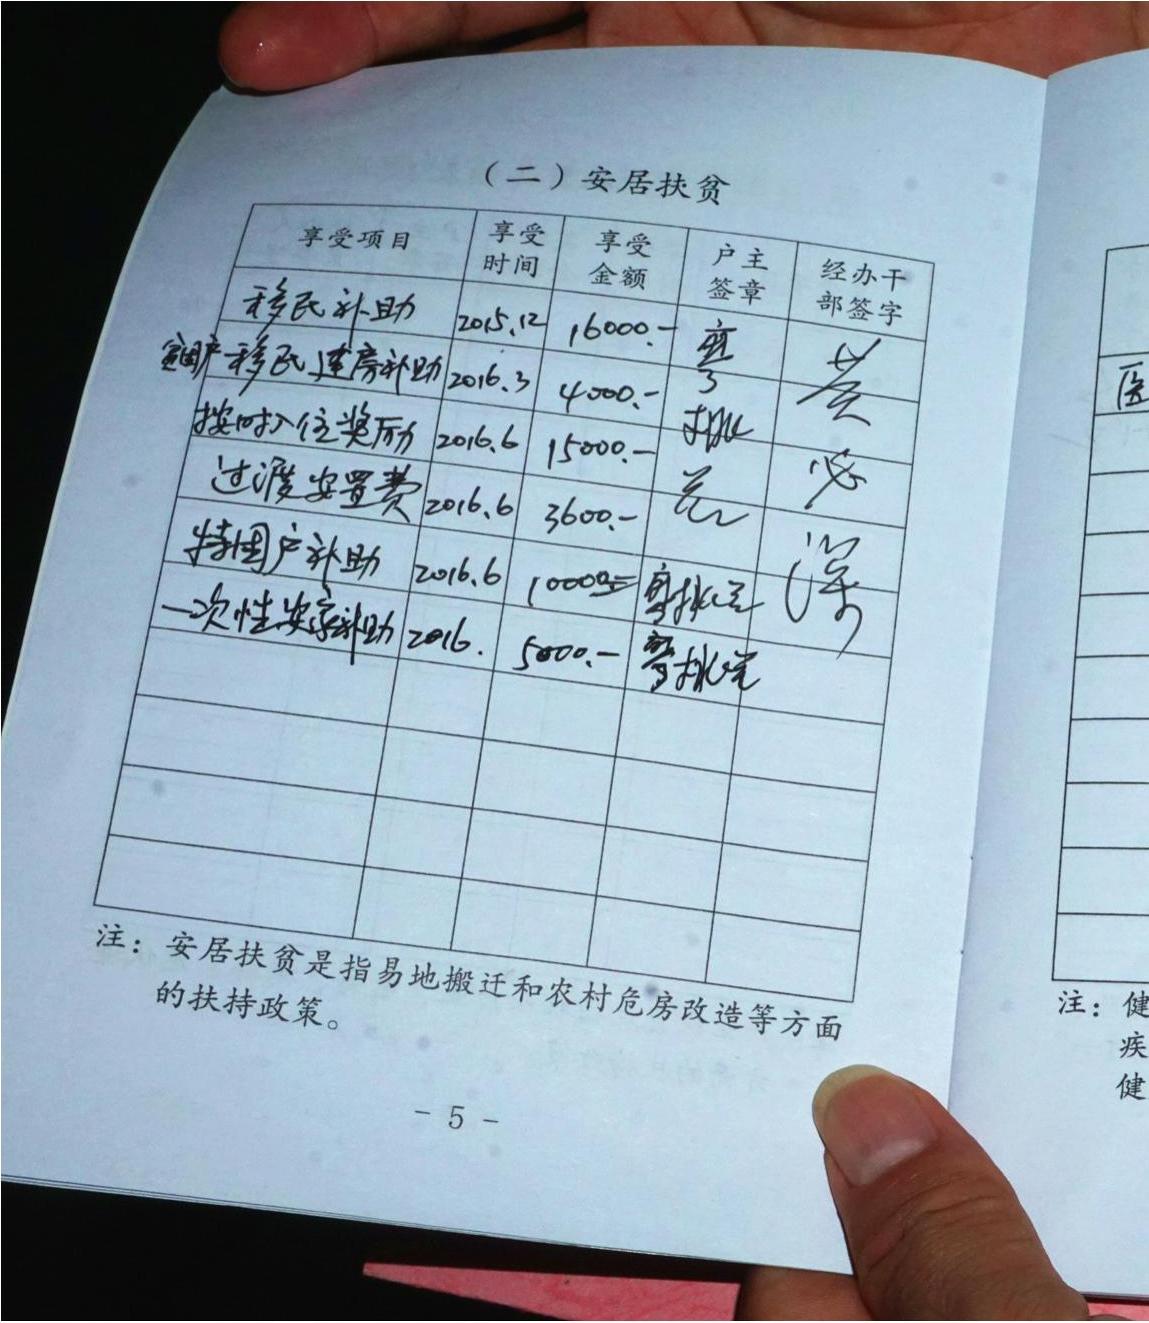 （二）安居扶贫
享受项目 享受时间 享受金额 户主签章 经办干部签字
移民补助 2015.12 16000.-
贫困户移民建房补助 2016.3 4000.-
按时入住奖励 2016.6 15000.-
过渡安置费 2016.6 3600.-
特困户补助 2016.6 10000=
一次性安家补助 2016. 5000.-
注：安居扶贫是指易地搬迁和农村危房改造等方面
的扶持政策。
- 5 -
医
注：健
疾
健